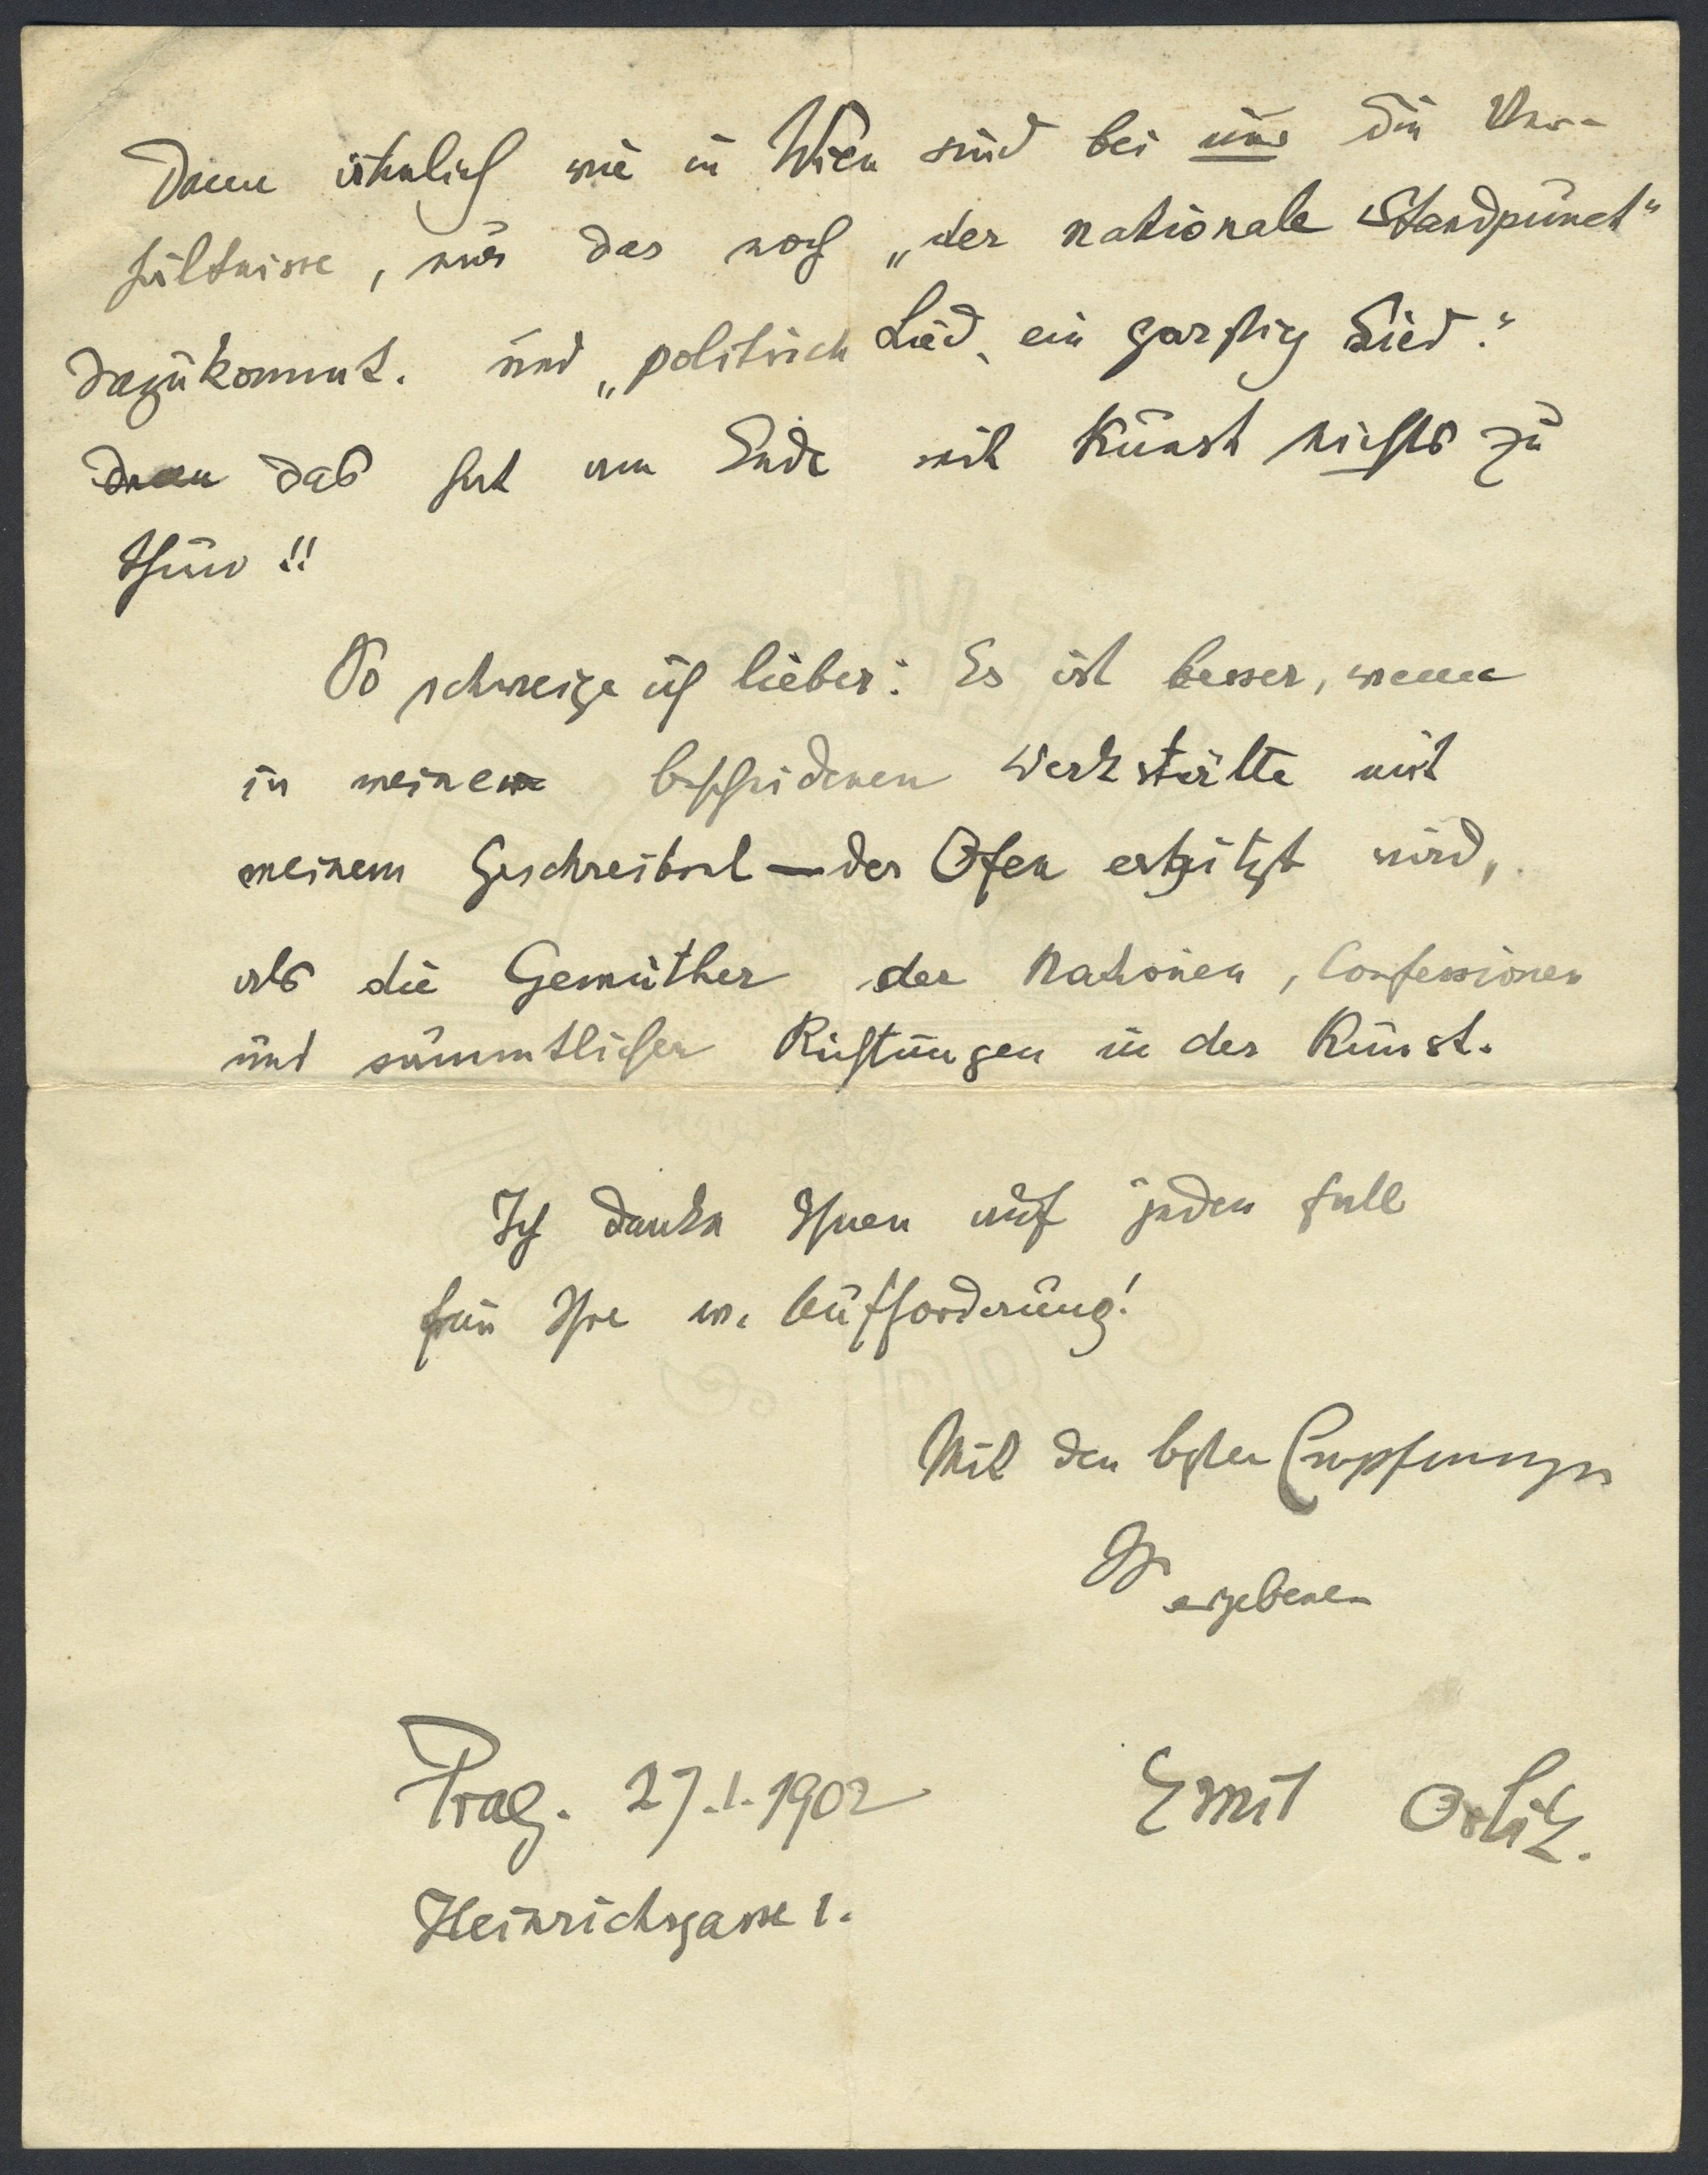 Denn ähnlich wie in Wien sind bei uns die Ver-
hältnisse, nur das noch „der nationale Standpunct"
dazukommt. und „politisch Lied, ein garstig Lied."
denn das hat am Ende mit Kunst nichts zu
thun!!
So schweige ich lieber: Es ist besser, wenn
in meiner bescheidenen Werkstätte mit
meinem Geschreibsel — der Ofen erhitzt wird,
als die Gemüther der Nationen, Confessionen
und sämmtlicher Richtungen in der Kunst.
Ich danke Ihnen auf jeden Fall
für Ihre w. Aufforderung!
Mit den besten Empfehlungen
Ihr ergebener
Prag. 27.1.1902
Emil Orlik.
Heinrichsgasse 1.